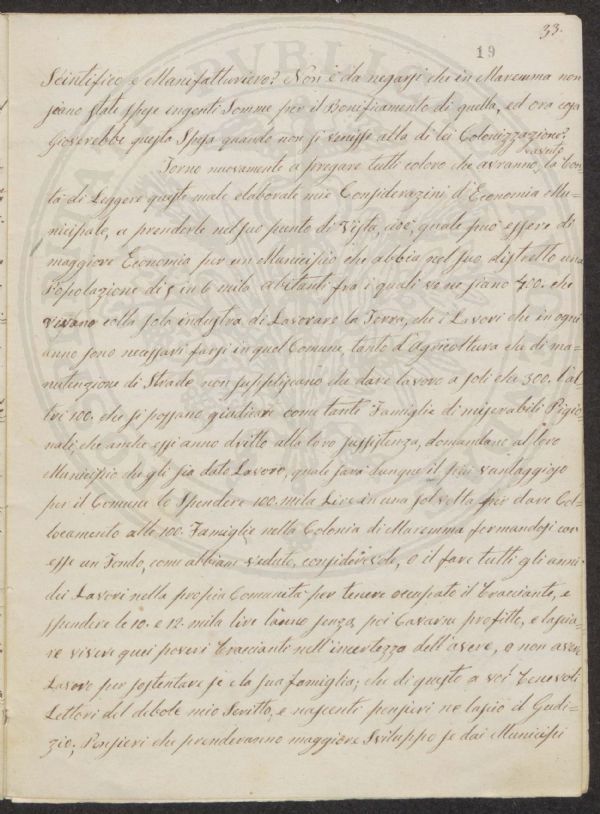 33.
19
Scintifico e Manifatturiero? Non è da negarsi che in Maremma non
siano stati spese ingenti Somme per il Bonifiamento di quella, ed ora cosa
Gioverebbe questa Spesa quando non si venisse alla di lei Colonizzazione?
Torno nuovamente a pregare tutti coloro che avranno avuto la Bon=
tà di Leggere queste male elaborate mie Considerazini d'Economia Mu=
nicipale, a prenderle nel suo punto di Vista, cioè, quale può essere di
maggiore Economia per un Municipio che abbia nel suo distretto una
Popolazione di 5 in 6 mila abitanti fra i quali ve ne siano 400. che
vivano colla sola industria di Lavorare la Terra, che i Lavori che in ogni
anno sono necessarj farsi in quel Comune, tanto d'agricoltura che di ma=
nutenzione di Strade non supplischino che dare lavoro a soli che 300. l'al=
tri 100. che si possano giudicare come tante Famiglie di miserabili Pigio=
nali, che anche essi anno dritto alla loro sussistenza, domandano al loro
Municipio che gli sia dato Lavoro, quale sarà dunque il più vantaggioso
per il Comune lo Spendere 100. mila Lire in una sol volta per dare Col=
locamento alle 100. Famiglie nella Colonia di Maremma formandosi con
esse un Fondo, come abbiam veduto, considerevole, o il fare tutti gli anni
dei Lavori nella propria Comunità per tenere occupato il Bracciante, e
spendere le 10. e 12. mila lire l'anno senza poi Cavarne profitto, e lascia=
re vivere quei poveri Braccianti nell'incertezza dell'avere, o non avere
Lavoro per sostentare se e la sua famiglia; che di questo a voi Benevoli
Lettori del debole mio Scritto, e nascenti pensieri ne lascio il Giudi=
zio; Pensieri che prenderanno maggiore Sviluppo se dai Municipi